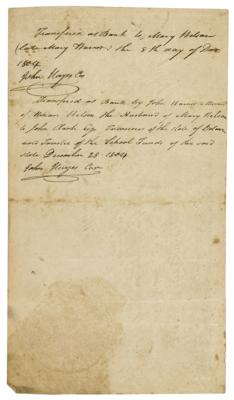 Transferred at Bank to Mary Nelson
(late Mary                ) the 8th day of Decr
1804
John Hayes Cr
Transferred at Bank by John                     
of                Nelson the Husband of Mary Nelson
to John Clark Esq Treasurer of the State of Delaw
and Trustee of the School Funds of the said
State December 28 1804
John Hayes Com